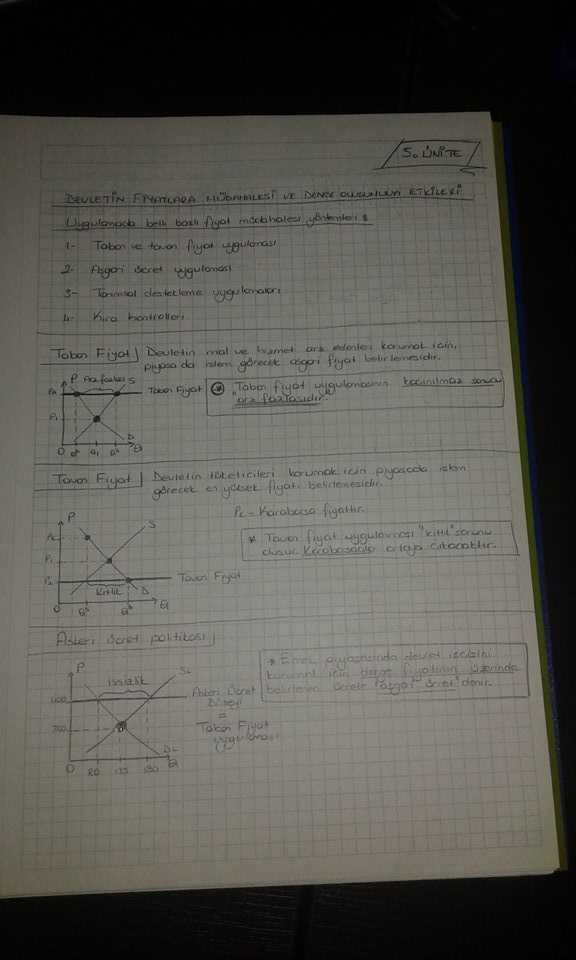 5. ÜNİTE
DEVLETİN FİYATLARA MÜDAHALESİ VE DENGE ETKİLERİ
Uygulamada belli başlı fiyat müdahalesi yöntemleri:
1- Taban ve tavan fiyat uygulaması
2- Asgari ücret uygulaması
3- Tarımsal destekleme uygulamaları
4- Kira kontrolleri
Taban Fiyat Devletin mal ve hizmet arz edenleri korumak için,
piyasada işlem görecek asgari fiyat belirlemesidir.
P Arz fazlası S
P2 Taban Fiyat
P1
D
0 Q1 Q
* Taban fiyat uygulamasının kaçınılmaz sonucu
"arz fazlasıdır."
Tavan Fiyat Devletin tüketicileri korumak için piyasada işlem
görecek en yüksek fiyatı belirlemesidir.
PK = Karaborsa fiyattır.
P
S
PK
P1
P2 Tavan Fiyat
Kıtlık D
0 Q
* Tavan fiyat uygulaması "kıtlık" sorunu
Karaborsada ortaya çıkacaktır.
Asgari ücret politikası
P
SL
işsizlik
Asgari Ücret
Düzeyi
=
Taban Fiyat
uygulaması
700
DL
0 80 Q
* Emek piyasasında devlet işçisini
korumak için denge fiyatının üzerinde
belirlenen ücrete "asgari ücret" denir.